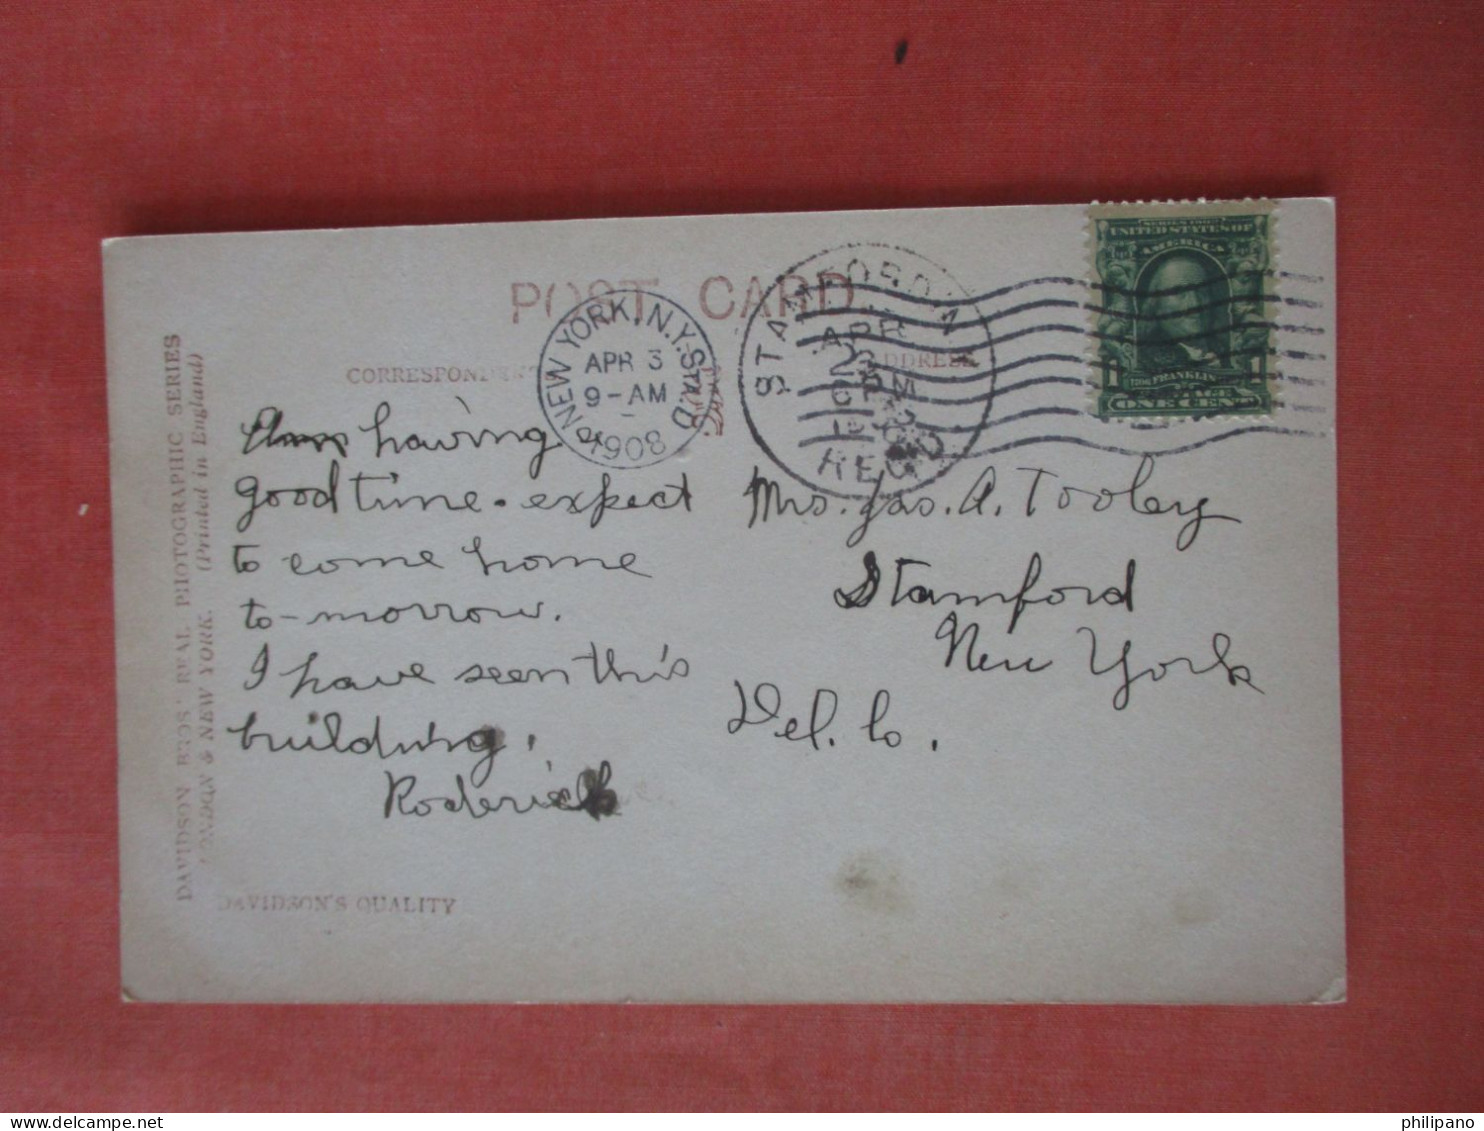 POST CARD
CORRESPONDEN
ADDRESS
NEW YORK, N.Y. STA. D
APR 3
9-AM
1908
STAMFORD
APR
REC'D
SERIES 1902
UNITED STATES OF
AMERICA
1 FRANKLIN 1
ONE CENT
having
good time. expect
to come home
to-morrow.
I have seen this
building.
Roderick
Mrs. Jas. A. Tooley
Stamford
New York
Del. Co.
DAVIDSON BROS' REAL PHOTOGRAPHIC SERIES
LONDON & NEW YORK. (Printed in England)
DAVIDSON'S QUALITY
philipano